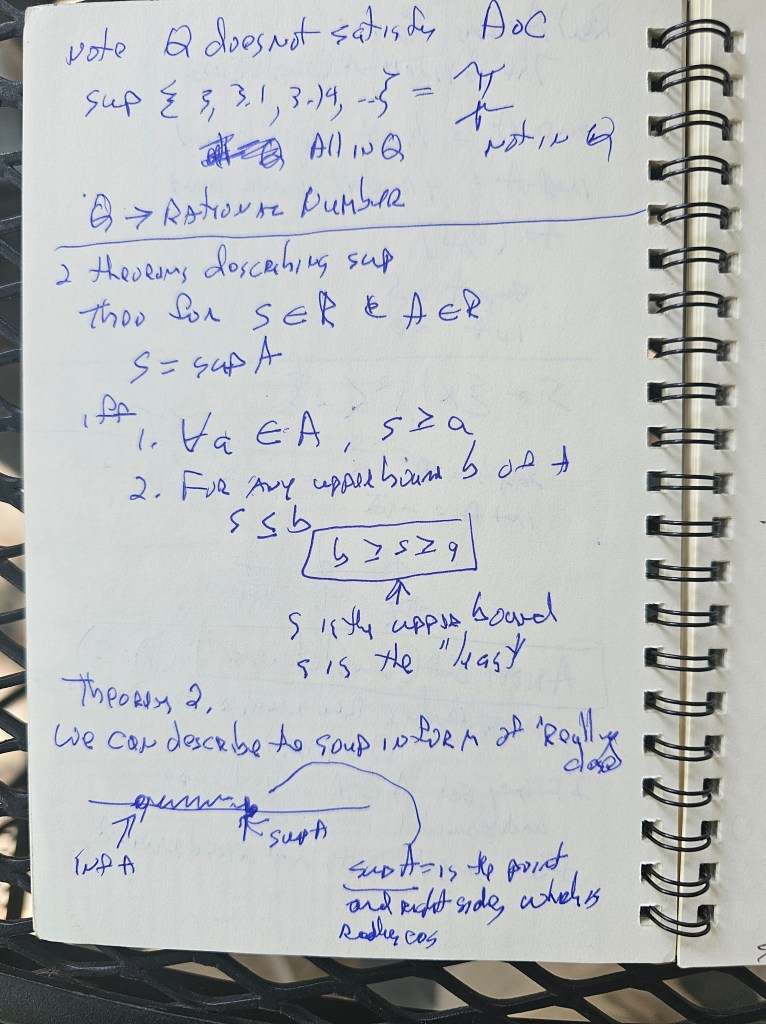 Note Q does not satisfy AoC
sup { 3, 3.1, 3.14, ...} = π
All in Q not in Q
Q → RATIONAL NUMBER
2 theorems describing sup
for S ∈ R & A ∈ R
S = sup A
iff
1. ∀a ∈ A, s ≥ a
2. For any upper bound b of A
s ≤ b
b ≥ s ≥ a
s is the upper bound
s is the "least"
Theorem 2.
We can describe to soup in form of "Really
close
sup A
Inf A
sup A = is the point
and right side, which is